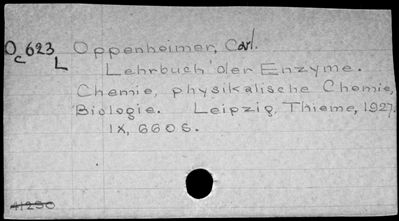 Oc623 Oppenheimer, Carl.
L Lehrbuch der Enzyme.
Chemie, physikalische Chemie,
Biologie. Leipzig, Thieme, 1927.
IX, 660 S.
41250